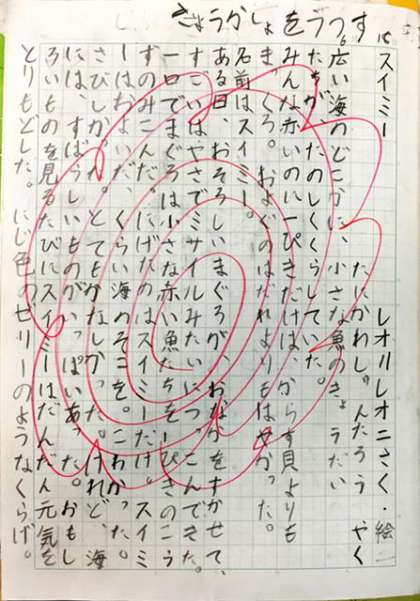 きょうかしょをうつす
スイミー
レオ=レオニさく・絵
たにかわしゅんたろう やく
広い海のどこかに、小さな魚のきょうだい
たちが、たのしくくらしていた。
みんな赤いのに一ぴきだけは、からす貝よりも
まっくろ。およぐのはだれよりもはやかった。
名前はスイミー。
ある日、おそろしいまぐろが、おなかをすかせて、
すごいはやさでミサイルみたいにつっこんできた。
一口でまぐろは小さな赤い魚たちを一ぴきのこら
ずのみこんだ。にげたのはスイミーだけ。スイミ
ーはおよいだ、くらい海のそこを。こわかった。
さびしかった。とてもかなしかった。けれど、海
には、すばらしいものがいっぱいあった。おもし
ろいものを見るたびにスイミーはだんだん元気を
とりもどした。にじ色のゼリーのようなくらげ。